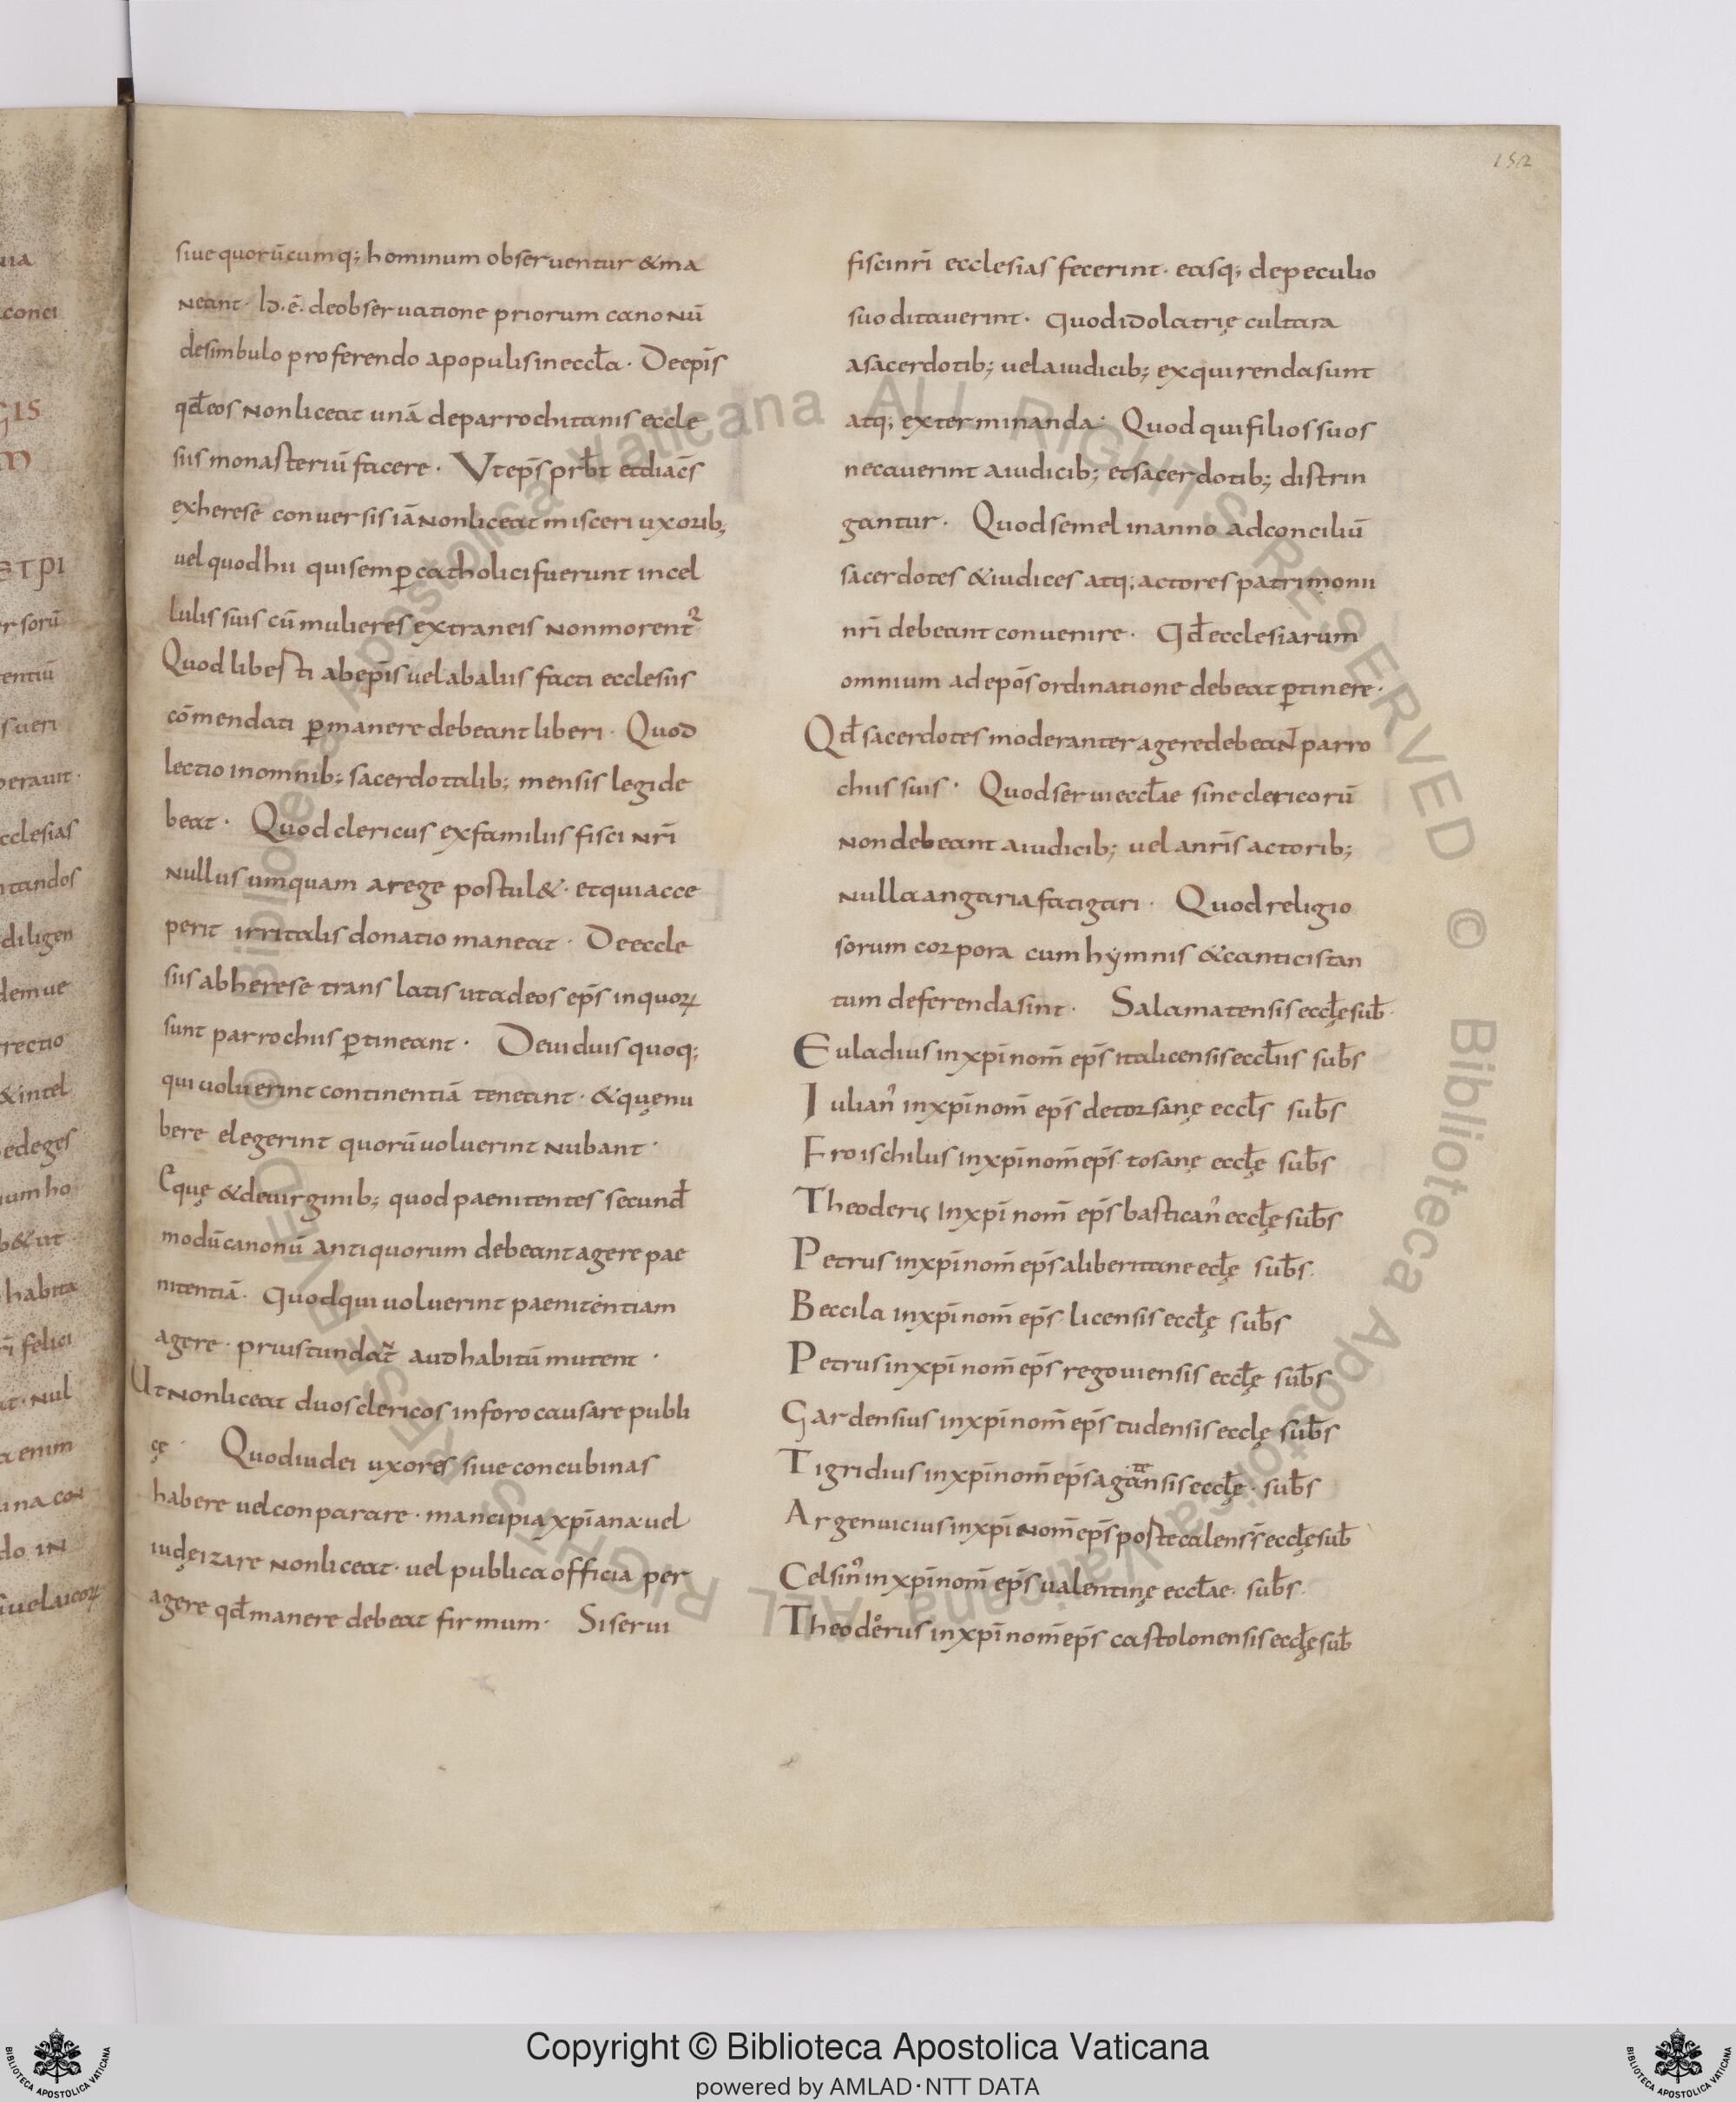 152
siue quorūcumq; hominum obseruentur &ma
neant· id·ē· deobseruatione priorum canonū
desimbulo proferendo apopulisineccła· Deepīs
qđeos nonliceat unā deparrochitanis eccle
siis monasteriū facere· Vtep̄s prb̄t etdiac̄s
exherese conuersis iānonliceat misceri uxorib;
uel quod hii quisemꝑcatholicifuerunt incel
lulis suis cū mulieres extraneis nonmorent᷑
Quod libesti abep̄is uelabaliis facti ecclesiis
cōmendati ꝑmanere debeant liberi· Quod
lectio inomnib; sacerdotalib; mensis legide
beat· Quodclericus exfamiliis fisci nr̄i
nullus umquam arege postul&· etquiacce
perit irritalis donatio maneat· Deeccle
siis abherese trans latis utadeos ep̄s inquoꝝ
sunt parrochiis ꝑtineant· Deuiduis quoq;
qui uoluerint continentiā teneant· &quęnu
bere elegerint quorūuoluerint nubant·
Eque &deuirginib; quod paenitentes secund̄
modūcanonū antiquorum debeantagere pae
nitentiā· Quodqui uoluerint paenitentiam
agere· priustundat᷑ authabitū mutent·
Ut nonliceat duosclericos inforo causare publi
cę· Quodiudei uxores siue concubinas
habere uelconparare· mancipia xp̄iana·uel
iudęizare nonliceat· uel publica officia per
agere qđmanere debeat firmum· Siserui
fiscinr̄i ecclesias fecerint· easq; depeculio
suo ditauerint· Quodidolatrię cultura
asacerdotib; uelaiudicib; exquirendasunt
atq; exterminanda· Quod quifiliossuos
necauerint aiudicib; etsacerdotib; distrin
gantur· Quodsemel inanno adconciliū
sacerdotes &iudices atq; actores patrimonii
nr̄i debeant conuenire· Qđecclesiarum
omnium adepōs ordinatione debeat ꝑtinere·
Qđ sacerdotes moderanter ageredebeant parro
chiis suis· Quodserui eccłae sine clericorū
nondebeant aiudicib; uel anr̄is actorib;
nulla angaria fatigari· Quod religio
sorum corpora cum hẏmnis &canticistan
tum deferenda sint· Salamatensis eccłę sub̄·
Euladius in xp̄i nom̄ ep̄s italicensis eccłiis sub̄s
Iulian᾽ in xp̄i nom̄ ep̄s detorsanę eccłs sub̄s
Froischilus in xp̄i nom̄ ep̄s· tosanę eccłę sub̄s
Theoderiς in xp̄i nom̄ ep̄s bastican᾽ eccłę sub̄s
Petrus in xp̄i nom̄ ep̄s aliberitane ecłę sub̄s·
Beccila in xp̄i nom̄ ep̄s· licensis eccłę sub̄s
Petrus in xp̄i nom̄ ep̄s regouiensis eccłę sub̄s
Gardensius in xp̄i nom̄ ep̄s tudensis ecclę sub̄s
Tigridius in xp̄i nom̄ ep̄s agansis eccłę· sub̄s
Argenuicius in xp̄i nom̄ ep̄s postecalens̄s eccłę sub̄
Celsin᾽ in xp̄i nom̄ ep̄s ualentinę eccłae· sub̄s·
Theodorus in xp̄i nom̄ ep̄s castolonensis eccłę sub̄
Copyright © Biblioteca Apostolica Vaticana
powered by AMLAD·NTT DATA